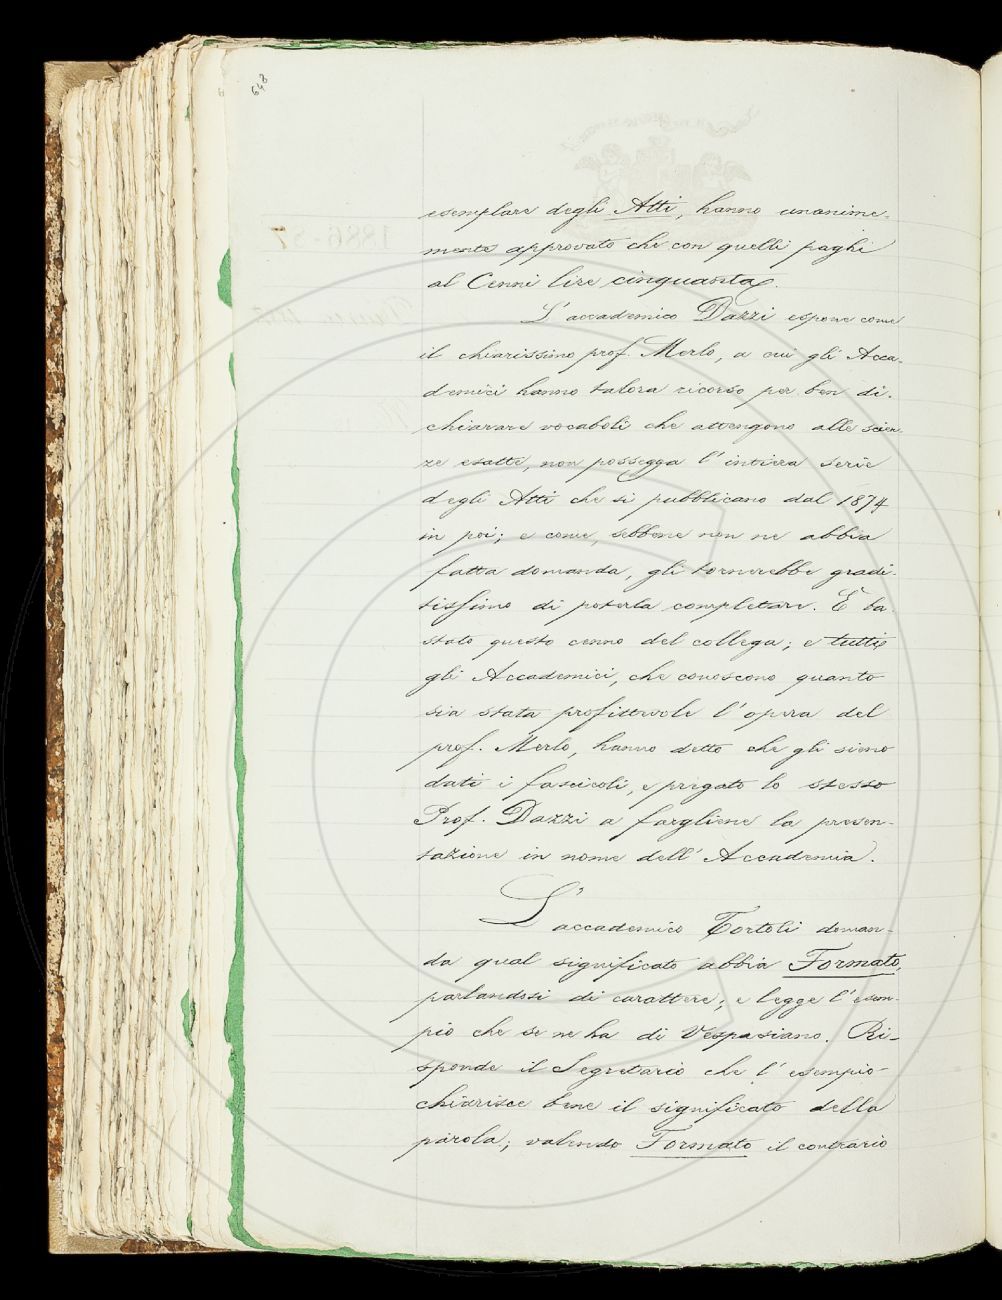 648
esemplare degli Atti, hanno unanime-
mente approvato che con quelli paghi
al Cenni lire cinquanta.
L'accademico Dazzi espone come
il chiarissimo prof. Merlo, a cui gli Acca-
demici hanno talora ricorso per ben di-
chiarare vocaboli che attengono alle scien-
ze esatte, non possegga l'intiera serie
degli Atti che si pubblicano dal 1874
in poi; e come, sebbene non ne abbia
fatta domanda, gli tornerebbe gradi-
tissimo di poterla completare. È ba-
stato questo cenno del collega; e tutti
gli Accademici, che conoscono quanto
sia stata profittevole l'opera del
prof. Merlo, hanno detto che gli sieno
dati i fascicoli, e pregato lo stesso
Prof. Dazzi a fargliene la presen-
tazione in nome dell'Accademia.
L'accademico Tortoli doman-
da qual significato abbia Formato,
parlandosi di carattere; e legge l'esem-
pio che se ne ha di Vespasiano. Ri-
sponde il Segretario che l'esempio
chiarisce bene il significato della
parola; valendo Formato il contrario